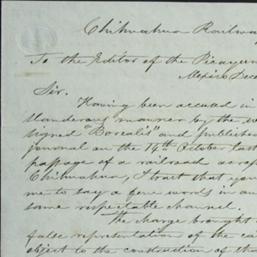 Chihuahua Railway
To the Editor of the Picayune
Mexico Dec
Sir.
Having been accused in
slanderous manner by the
signed "Borealis" and published
journal on the 14th October last
passage of a railroad across
Chihuahua, I trust that you
me to say a few words in an
same respectable channel.
The charge brought
false representation of the ca
object to the construction of tha